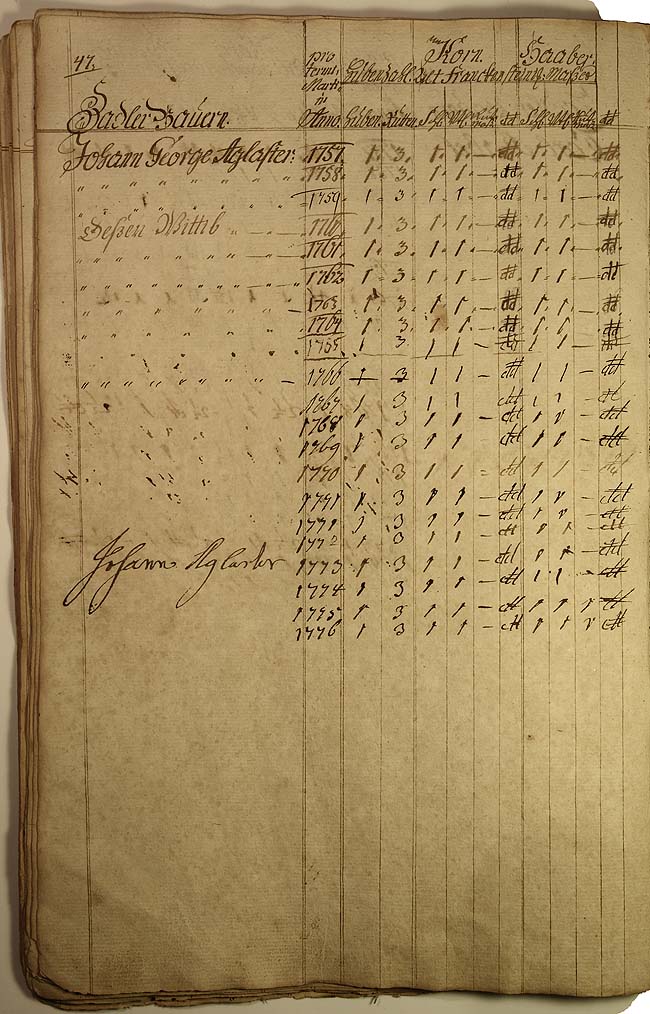 47.
pro termi. Martini Anno. Hubbenzahl. Korn. Haaber.
Alt Franckensteinl. Maßer
Zadler Bauern. Hubben. Ruten. Schfl. Vtl. dd Schfl. Vtl. dd
Johann George Aglaster: 1757. 1. 3. 1. 1. — dd. 1. 1. — dd.
" " " " " " " 1758. 1. 3. 1. 1. — dd. 1. 1. — dd.
" " " " " " " 1759. 1 3 1 1 — dd 1 1 — dd
Deßen Wittib " — " — 1760. 1 3. 1 1 — dd. 1. 1. — dd.
" " " " " " " 1761. 1. 3. 1. 1. — dd. 1. 1. — dd.
" " " " " " " 1762 1 3 1. 1. — dd. 1. 1. — dd
" " " " " " " 1763 1. 3. 1. 1. — dd. 1. 1. — dd.
" " " " " " " 1764 1. 3. 1. 1. — dd. 1. 1. — dd
1765 1 3 1 1 — dd 1 1 — dd
" " " " " " " — 1766 1 3 1 1 — dd 1 1 — dd
1767 1 3 1 1 dd 1 1 — dd
1768 1 3 1 1 — dd 1 1 — dd
1769 1 3 1 1 dd 1 1 — dd
1770 1 3 1 1 — dd 1 1 — dd
1771 1 3 1 1 — dd 1 1 — dd
1771 1 3 1 1 — dd 1 1 — dd
1772 1 3 1 1 — dd 1 1 — dd
Johann Aglaster 1773 1 3 1 1 — dd 1 1 — dd
1774 1 3 1 1 — dd 1 1 — dd
1775 1 3 1 1 — dd 1 1 1 dd
1776 1 3 1 1 — dd 1 1 1 dd